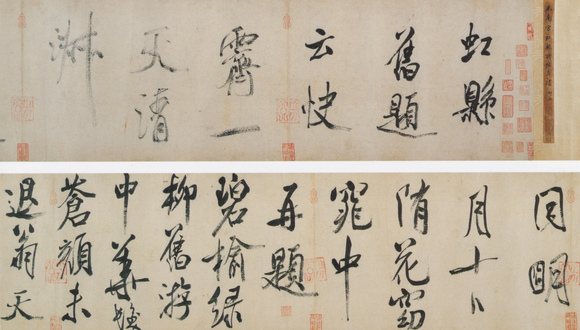 虹縣
舊題
云快
霽一
天清
淑
同明
月十日
隨花窈
窕中
再題
碧榆綠
柳舊游
中華髮
蒼顏未
退翁天